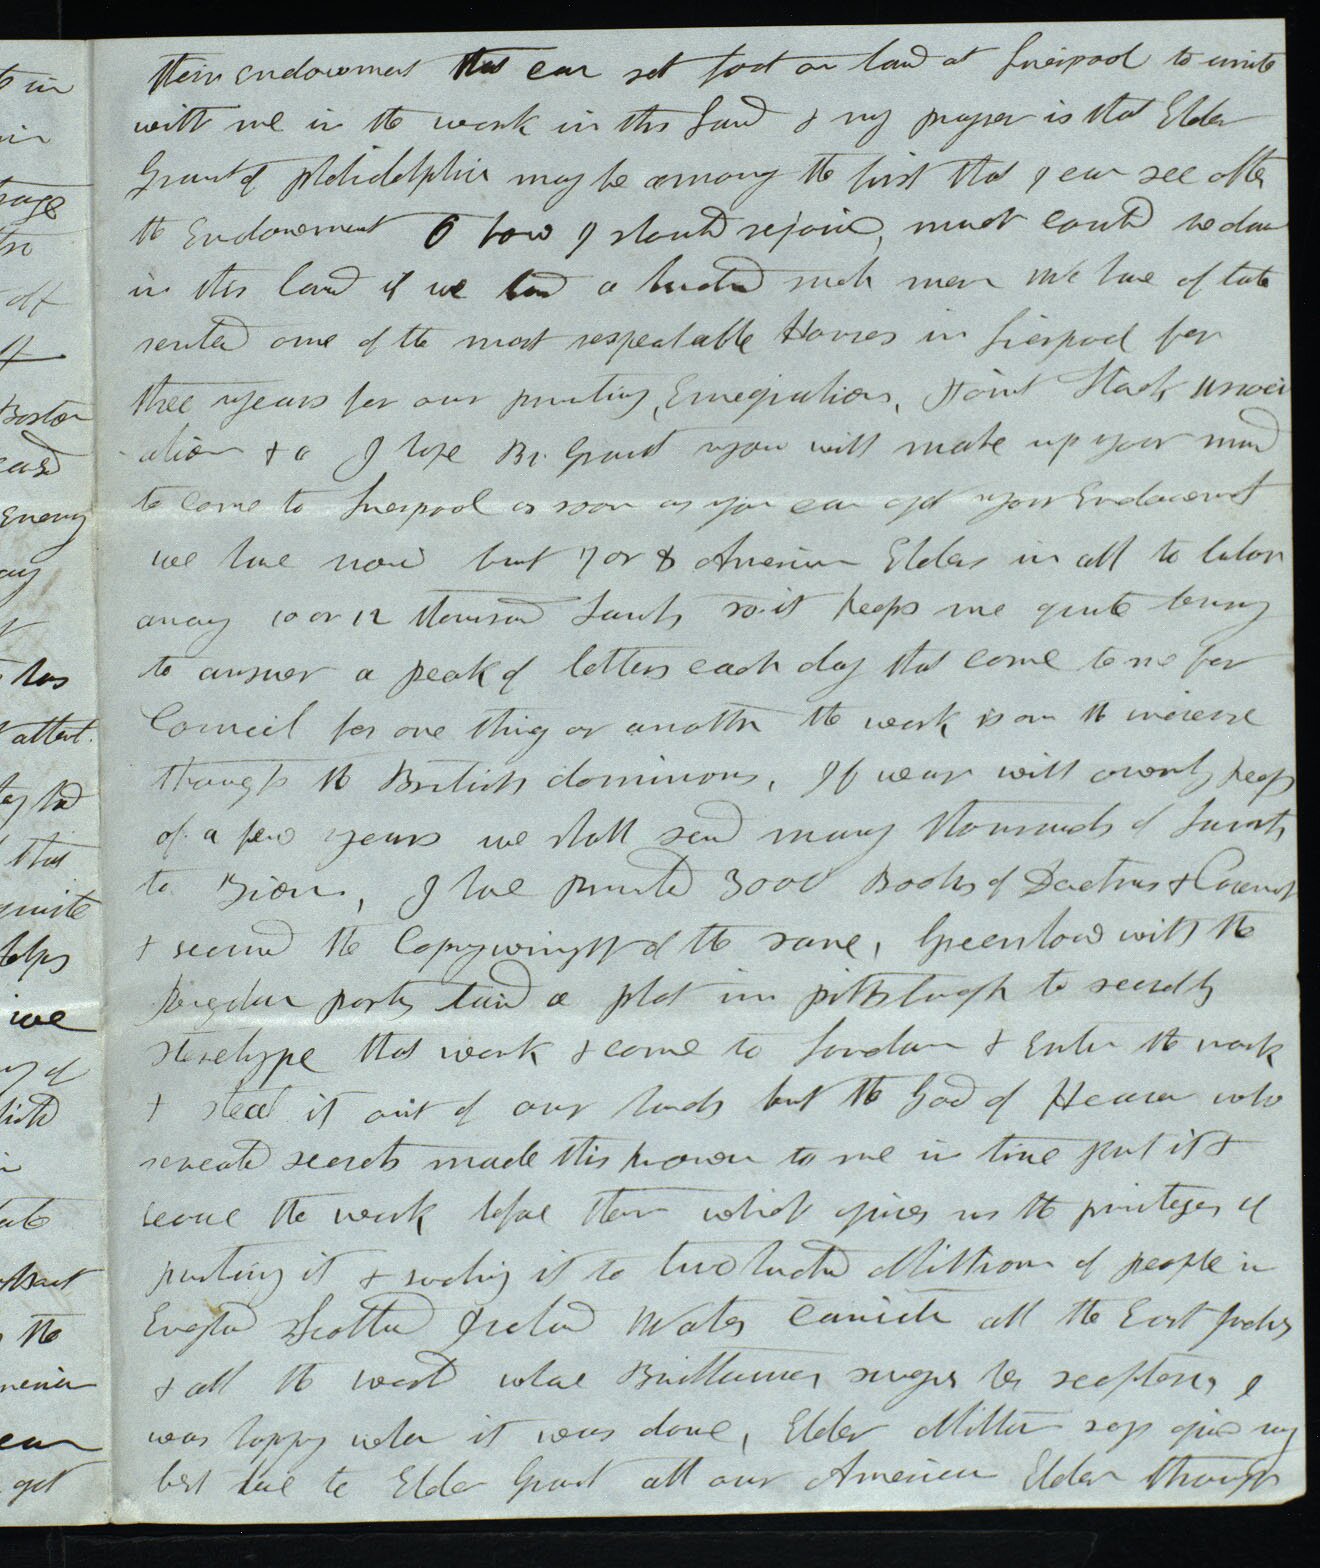 their endowment that can set foot on land at Liverpool to unite
with me in the work in this Land & my prayer is that Elder
Grant of philidelphia may be among the first that I can see after
the Endowment O how I should rejoice, must could be done
in this land if we had a hundred such men We have of late
rented one of the most respectable Houses in Liverpool for
three years for our printing, Emegration, Joint Stock associ
ation & c I hope Br Grant you will make up your mind
to come to Liverpool as soon as you can get your Endowment
we have now but 7 or 8 American Elders in all to labor
among 10 or 12 thousand Saints so it keeps me quite busy
to answer a peak of letters each day that come to me for
Council for one thing or another the work is on the increse
through the British dominions, If wear will ownly keep
of a few years we shall send many thousands of Saints
to Zion, I have printed 3000 Books of Doctrins & Covenants
& secured the Copywright of the same, Greenhow with the
Rengdon party laid a plot in pittsburgh to secretly
steretype that work & come to London & Enter the work
& steal it out of our hands but the God of Heaven who
reveald secrets made this known to me in time print it &
secure the work before them which gives us the privileges of
printing it & sending it to two hundred Millions of people in
England Scotland Ireland Wales Canida all the East Indies
& all the world whare Brittannia swayes her scepters, I
was happy when it was done, Elder Milton says give my
best love to Elder Grant all our American Elder through